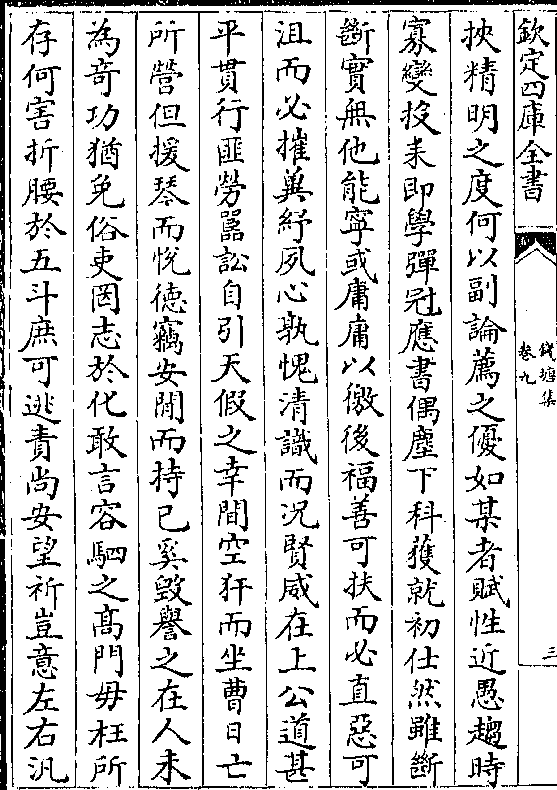 欽定四庫全書
錢塘集
卷九
三
挾精明之度何以副論薦之優如某者賦性近愚趨時
寡變投耒即學彈冠應書偶塵下科獲就初仕然雖斷
斷實無他能寧或庸庸以徼後福善可扶而必直惡可
沮而必摧冀紓夙心孰愧清識而况賢威在上公道甚
平貫行匪勞嚚訟自引天假之幸間空犴而坐曹日亡
所營但援琴而悦徳竊安閒而持已奚毀譽之在人未
為竒功猶免俗吏罔志於化敢言容駟之髙門毋枉所
存何害折腰於五斗庶可逃責尚安望祈豈意左右汎